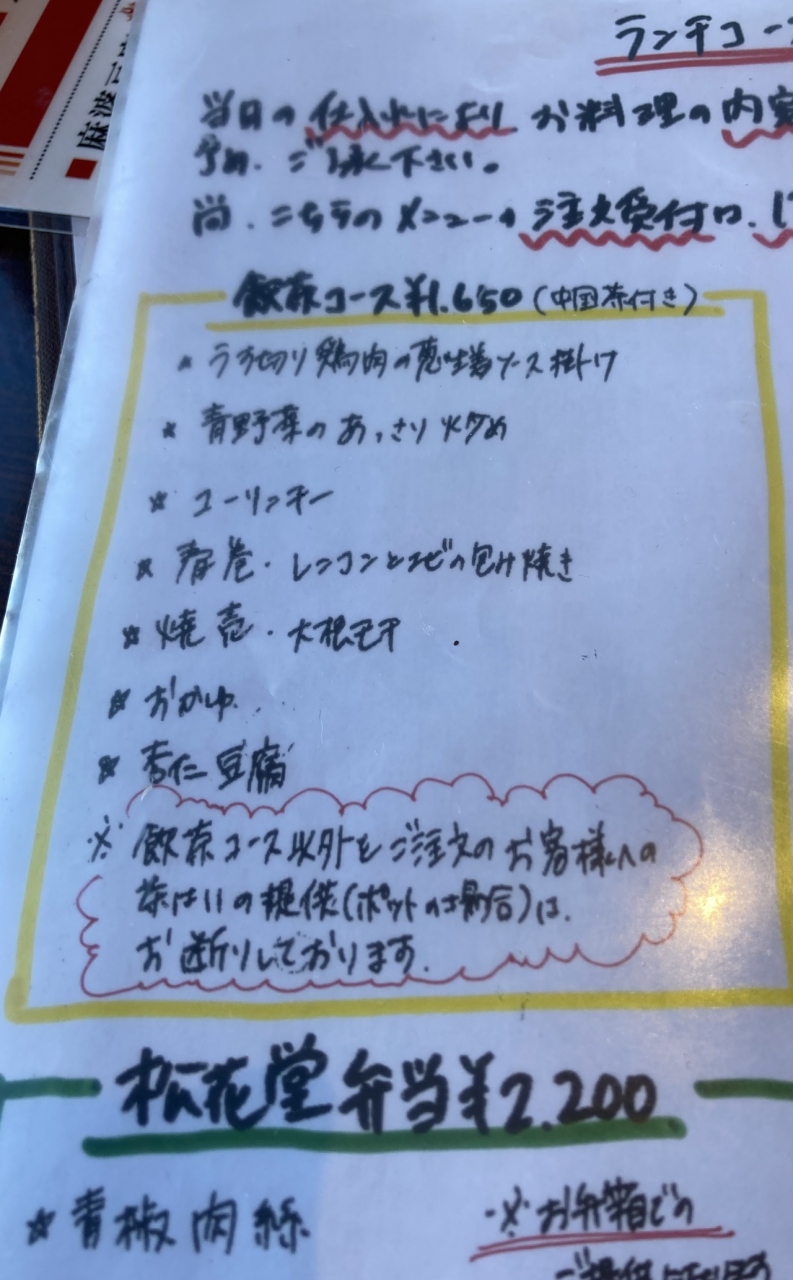 麻婆
ランチコース
当日の仕入れにより お料理の内容
予め、ご了承下さい。
尚、こちらのメニューの注文受付は、
飲茶コース¥1.650(中国茶付き)
★ うす切り鶏肉の葱生姜ソース掛け
★ 青野菜のあっさり炒め
★ ユーリンチー
★ 春巻・レンコンとエビの包み焼き
★ 焼売・大根モチ
★ おかゆ
★ 杏仁豆腐
※ 飲茶コース以外をご注文のお客様への
茶はいの提供(ポットの場合)は、
お断りしております。
松花堂弁当¥2.200
★ 青椒肉絲
※お弁箱での